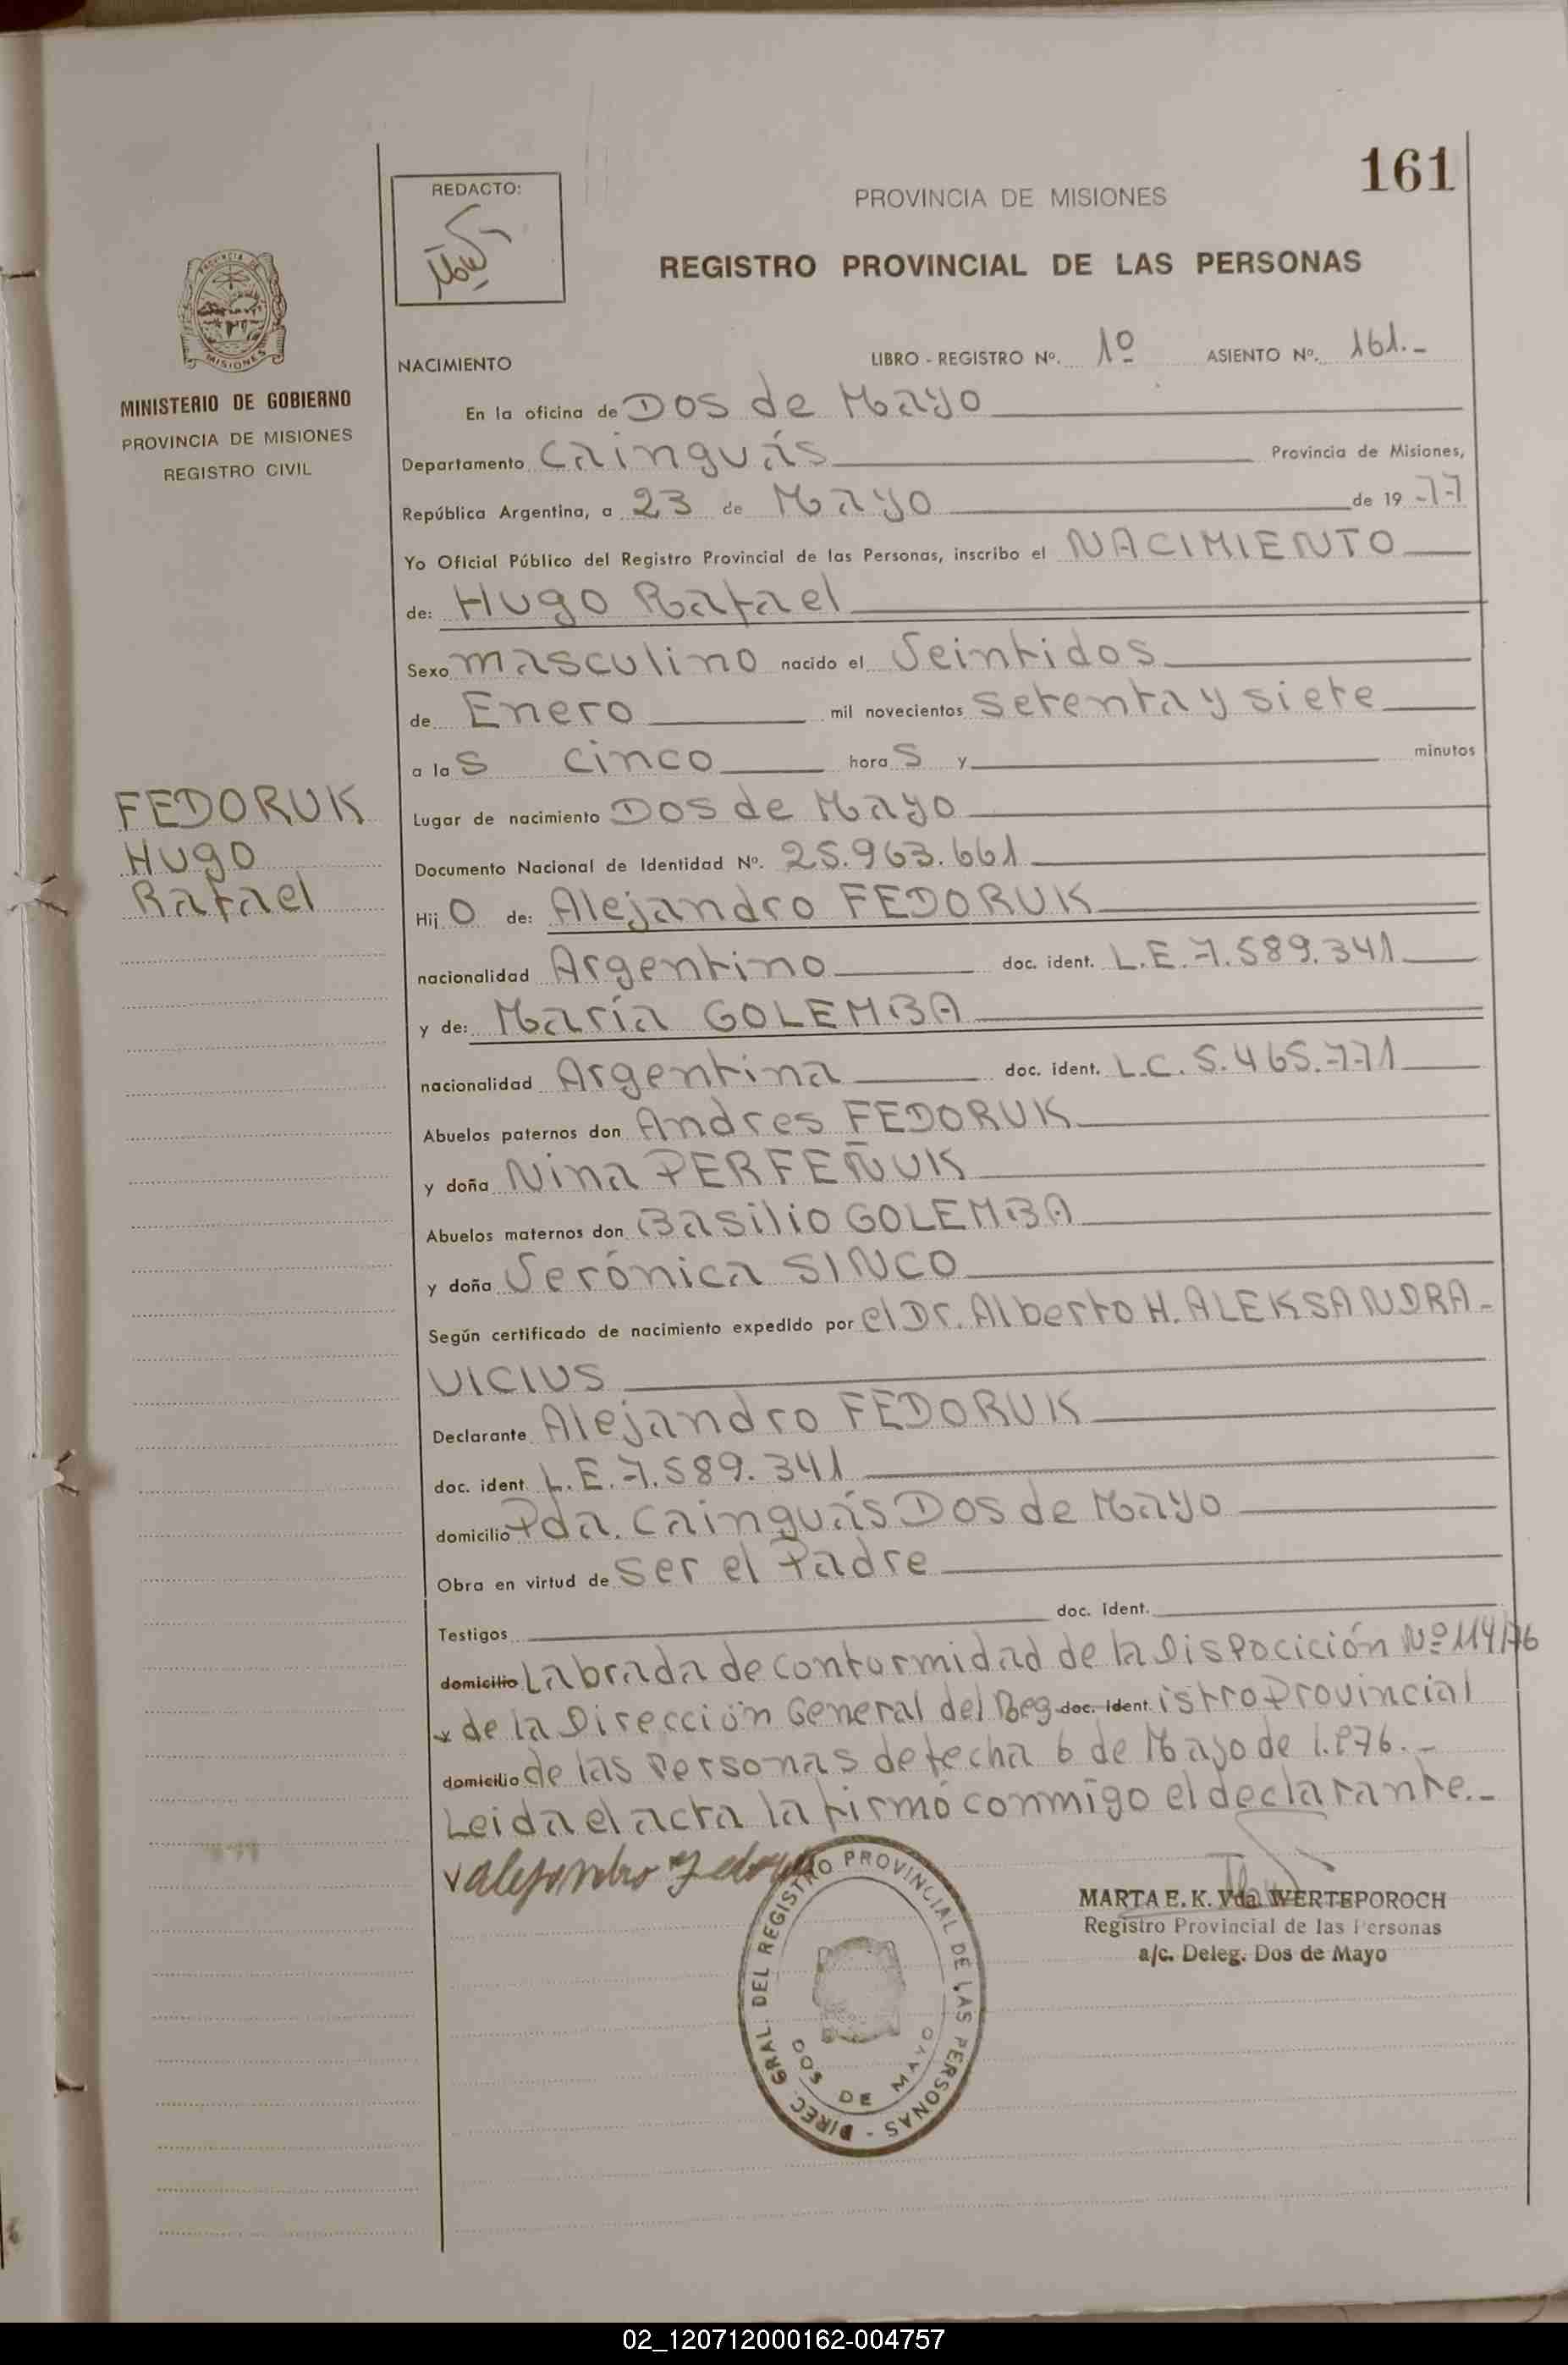 161
REDACTO:
PROVINCIA DE MISIONES
REGISTRO PROVINCIAL DE LAS PERSONAS
PROVINCIA DE
MISIONES
MINISTERIO DE GOBIERNO
PROVINCIA DE MISIONES
REGISTRO CIVIL
NACIMIENTO LIBRO - REGISTRO Nº. 1º ASIENTO Nº. 161.-
En la oficina de Dos de Mayo
Departamento Cainguás Provincia de Misiones,
República Argentina, a 23 de Mayo de 19 77
Yo Oficial Público del Registro Provincial de las Personas, inscribo el NACIMIENTO
de: Hugo Rafael
Sexo masculino nacido el Veintidos
de Enero mil novecientos setenta y siete
a las cinco horas y minutos
FEDORUK
Hugo
Rafael
Lugar de nacimiento Dos de Mayo
Documento Nacional de Identidad Nº. 25.963.661
Hijo de: Alejandro FEDORUK
nacionalidad Argentino doc. ident. L.E.7.589.341
y de: María GOLEMBA
nacionalidad Argentina doc. ident. L.C.5.465.771
Abuelos paternos don Andres FEDORUK
y doña Nina PERFEÑUK
Abuelos maternos don Basilio GOLEMBA
y doña Verónica SINCO
Según certificado de nacimiento expedido por el Dr. Alberto H. ALEKSANDRA-
VICIUS
Declarante Alejandro FEDORUK
doc. ident. L.E.7.589.341
domicilio Pda. Cainguás Dos de Mayo
Obra en virtud de ser el Padre
Testigos doc. ident.
domicilio Labrada de conformidad de la Dispocición Nº 114/76
de la Dirección General del Reg doc. ident. istro Provincial
domicilio de las Personas de fecha 6 de Mayo de 1.976.-
Leida el acta la firmó conmigo el declarante.-
Alejandro Fedoruk
MARTA E. K. Vda. WERTEPOROCH
Registro Provincial de las Personas
a/c. Deleg. Dos de Mayo
DIREC. GRAL. DEL REGISTRO PROVINCIAL DE LAS PERSONAS -
DOS DE MAYO
02_120712000162-004757